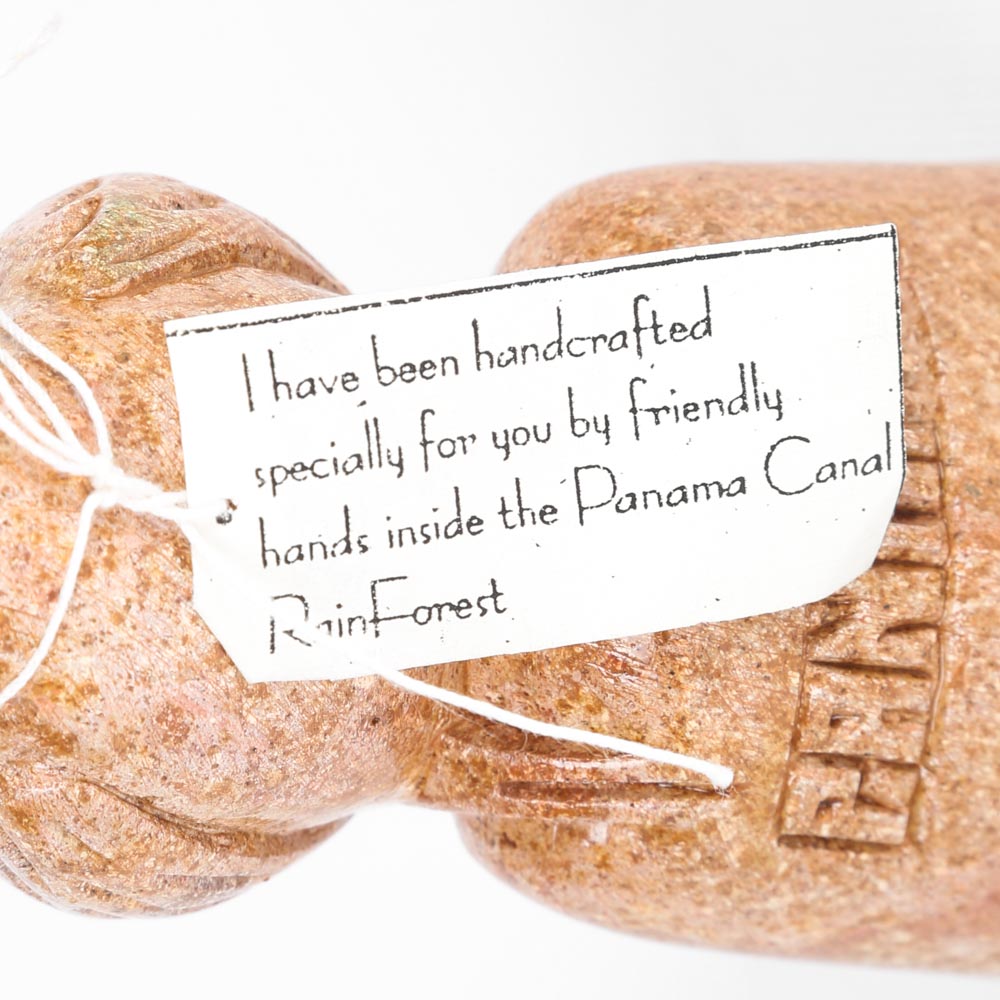 I have been handcrafted
specially for you by friendly
hands inside the Panama Canal
RainForest